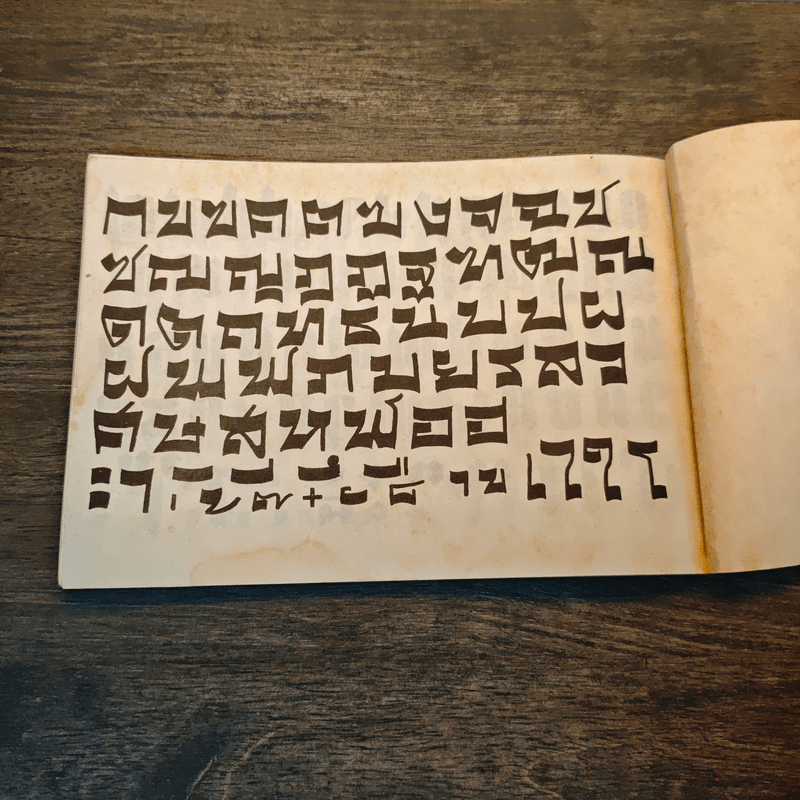 กขฃคฅฆงจฉช
ซฌญฎฏฐฑฒณ
ดตถทธนบปผ
ฝพฟภมยรลว
ศษสหฬอฮ
ะ า ิ ี ึ ื ่ ้ ๊ ๋ ั ุ ู เ ไ ใ โ